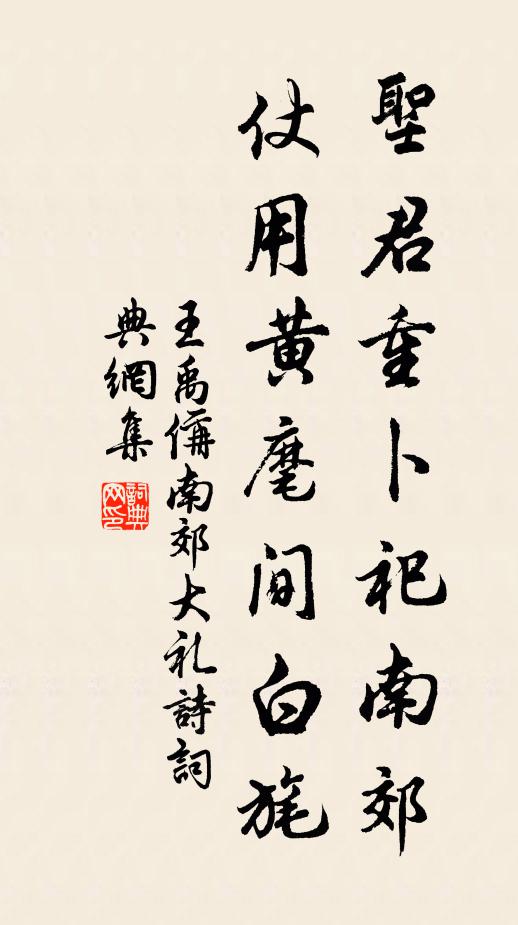 聖君重卜祀南郊
仗用黃麾間白旄
王禹偁南郊大礼詩詞
典網集
詞典
网印